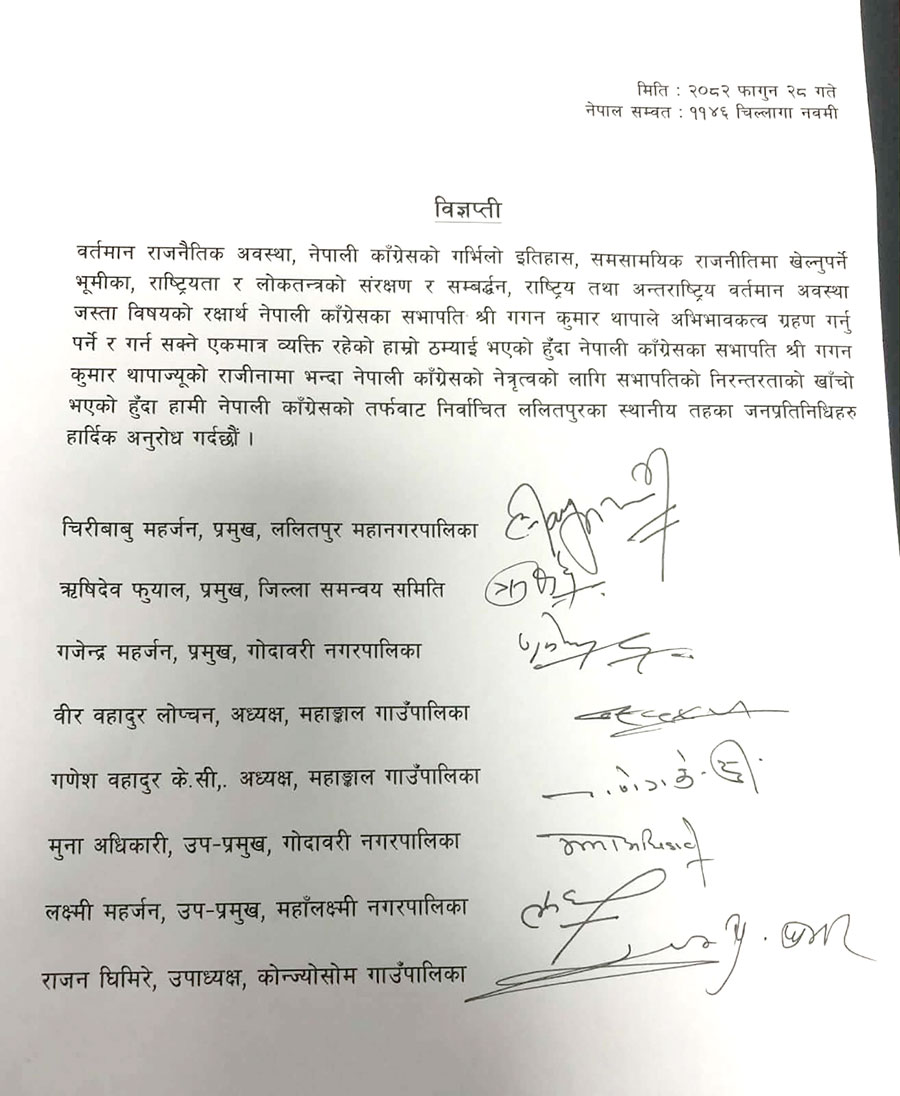 मिति : २०८२ फागुन २८ गते
नेपाल सम्वत : ११४६ चिल्लागा नवमी
विज्ञप्ती
वर्तमान राजनैतिक अवस्था, नेपाली काँग्रेसको गर्भिलो इतिहास, समसामयिक राजनीतिमा खेल्नुपर्ने
भूमीका, राष्ट्रियता र लोकतन्त्रको संरक्षण र सम्बर्द्धन, राष्ट्रिय तथा अन्तराष्ट्रिय वर्तमान अवस्था
जस्ता विषयको रक्षार्थ नेपाली काँग्रेसका सभापति श्री गगन कुमार थापाले अभिभावकत्व ग्रहण गर्नु
पर्ने र गर्न सक्ने एकमात्र व्यक्ति रहेको हाम्रो ठम्याई भएको हुँदा नेपाली काँग्रेसका सभापति श्री गगन
कुमार थापाज्यूको राजीनामा भन्दा नेपाली काँग्रेसको नेत्रृत्वको लागि सभापतिको निरन्तरताको खाँचो
भएको हुँदा हामी नेपाली काँग्रेसको तर्फवाट निर्वाचित ललितपुरका स्थानीय तहका जनप्रतिनिधिहरु
हार्दिक अनुरोध गर्दछौं ।
चिरीबाबु महर्जन, प्रमुख, ललितपुर महानगरपालिका
ऋषिदेव फुयाल, प्रमुख, जिल्ला समन्वय समिति
गजेन्द्र महर्जन, प्रमुख, गोदावरी नगरपालिका
वीर वहादुर लोप्चन, अध्यक्ष, महाङ्काल गाउँपालिका
गणेश वहादुर के.सी,. अध्यक्ष, महाङ्काल गाउँपालिका
मुना अधिकारी, उप-प्रमुख, गोदावरी नगरपालिका
लक्ष्मी महर्जन, उप-प्रमुख, महाँलक्ष्मी नगरपालिका
राजन घिमिरे, उपाध्यक्ष, कोन्ज्योसोम गाउँपालिका